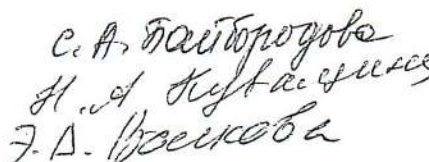 С. А. Байбородова
Н. А Кувалдина
Э. Д. Волкова